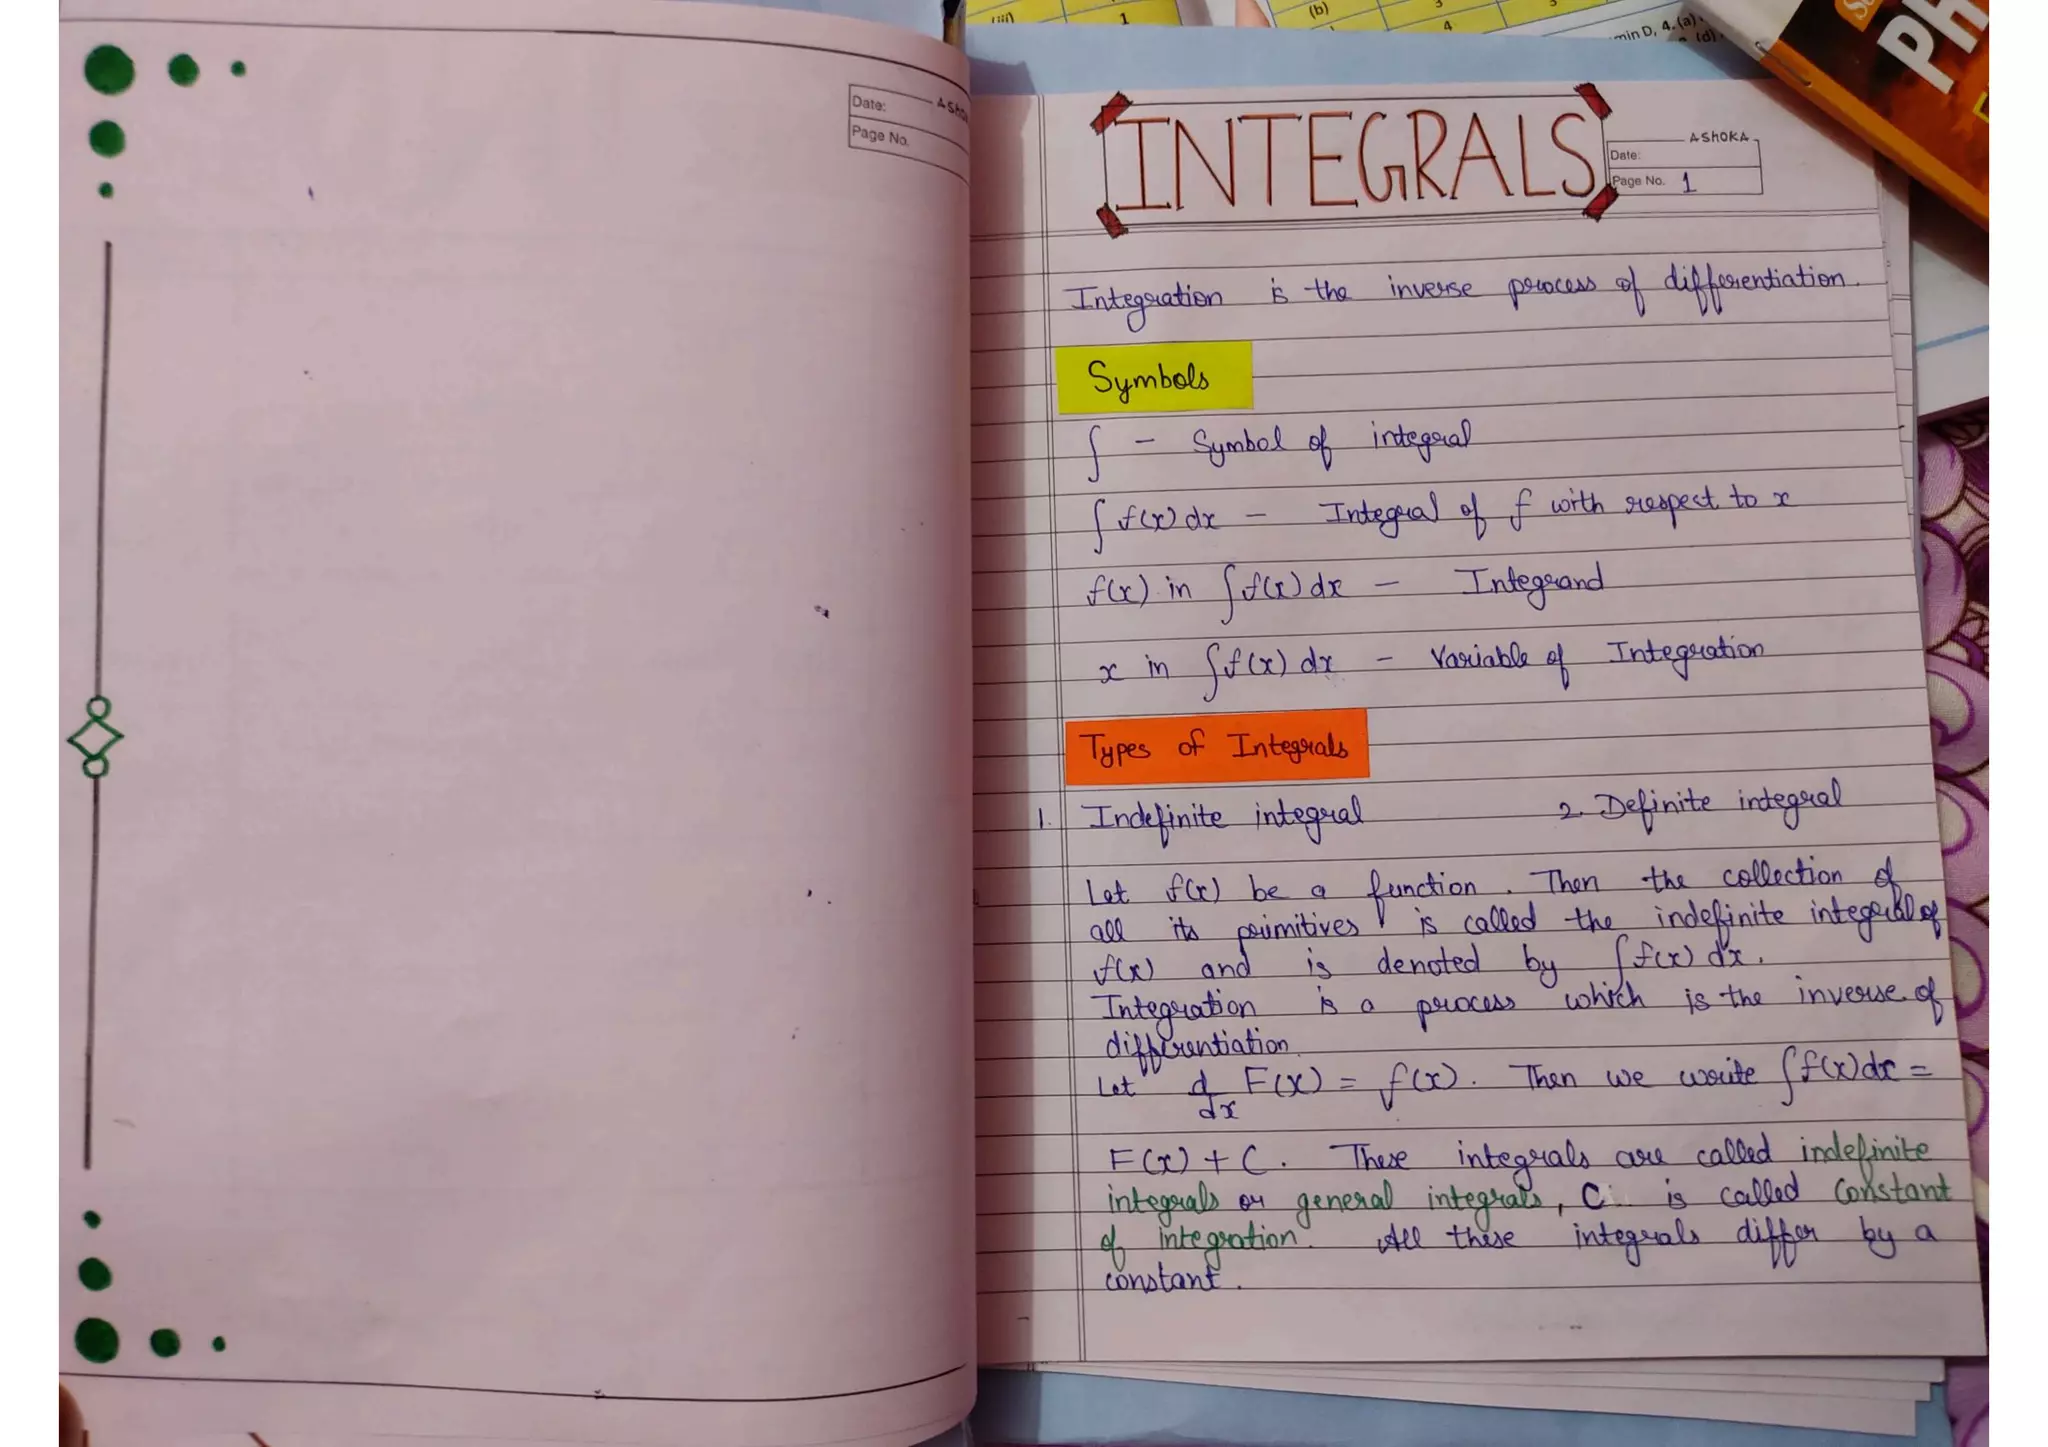 (iii)
1
(b)
3
4
3
min D, 4. (a)
(d)
Ph
Date:
ASHO
Page No.
INTEGRALS
ASHOKA
Date:
Page No. 1
Integration is the inverse process of differentiation.
Symbols
∫ - Symbol of integral
∫ f(x) dx - Integral of f with respect to x
f(x) in ∫ f(x) dx - Integrand
x in ∫ f(x) dx - Variable of Integration
Types of Integrals
1. Indefinite integral 2. Definite integral
Let f(x) be a function. Then the collection of
all its primitives is called the indefinite integral of
f(x) and is denoted by ∫ f(x) dx.
Integration is a process which is the inverse of
differentiation.
Let d/dx F(x) = f(x). Then we write ∫ f(x) dx =
F(x) + C. These integrals are called indefinite
integrals or general integrals, C is called Constant
of integration. All these integrals differ by a
constant.